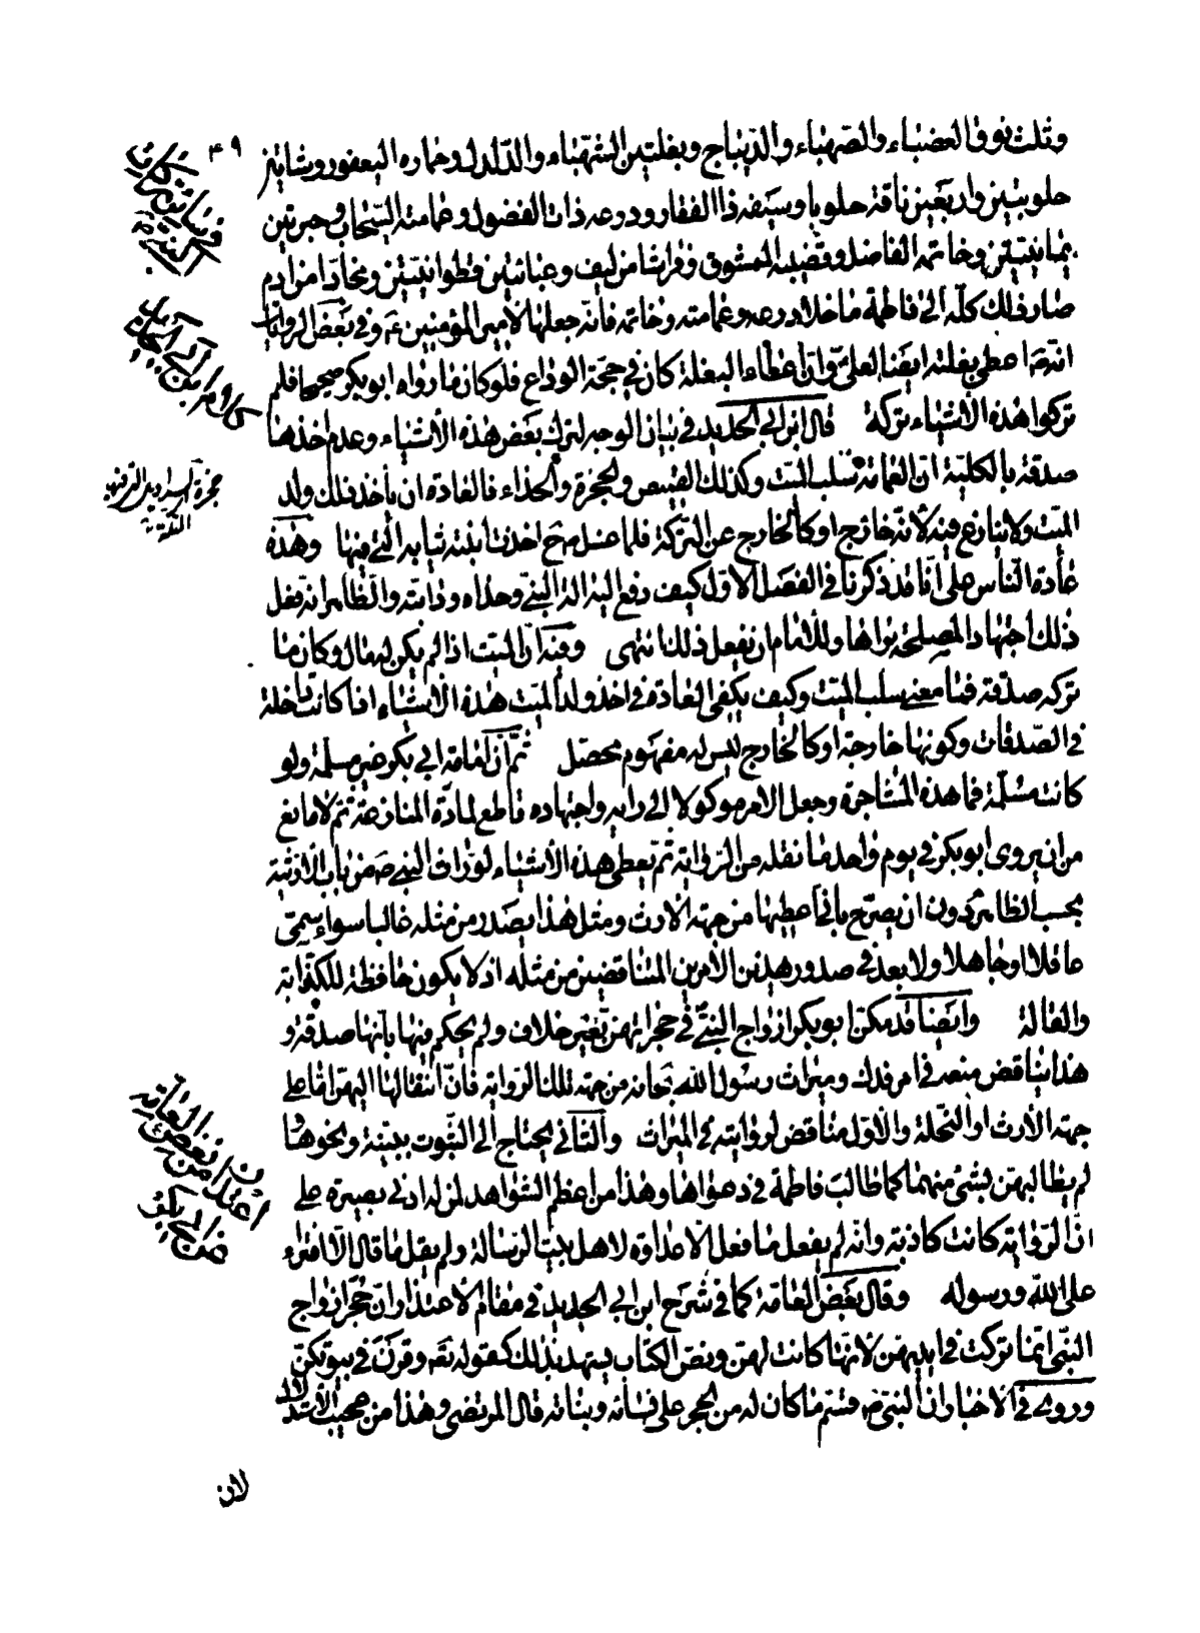 ٤٩
وثلث نوق العضباء والصهباء والديباج وبغلتين الشهباء والدلدل وحماره اليعفور وشاتين
حلوبتين واربعين ناقة حلوبا وسيفه ذا الفقار ودرعه ذات الفضول وعمامته السحاب وحبرتين
يمانيتين وخاتمه الفاضل وقضيبه الممشوق وفراشا من ليف وعبائتين قطوانيتين ومخادا من ادم
صار ذلك كله الى فاطمة ما خلا درعه وعمامته وخاتمه فانه جعلها لأمير المؤمنين ع وفي بعض الروايات
انه ص اعطى بغلته ايضا لعلي وان اعطاء البغلة كان في حجة الوداع فلو كان ما رواه ابو بكر صحيحا فلم
تركوا هذه الأشياء تركة قال ابن ابي الحديد في بيان الوجه لترك بعض هذه الأشياء وعدم اخذها
صدقة بالكلية ان العمامة تسلب الميت وكذلك القميص والحجزة والحذاء فالعادة ان يأخذ ذلك ولد
الميت ولا ينازع فيه لأنه خارج او كالخارج عن التركة فلما غسل ص اخذت ابنته ثيابه التي فيها وهذه
عادة الناس على انا قد ذكرنا في الفصل الاول كيف دفع اليه الة النبي وحذاه ودابته والظاهر انه فعل
ذلك اجتهادا لمصلحة يراها وللامام ان يفعل ذلك انتهى وفيه ان الميت اذا لم يكن له مال وكان ما
تركه صدقة فما معنى سلب الميت وكيف يكفي العادة في اخذ ولد الميت هذه الأشياء اذا كانت داخلة
في الصدقات وكونها خارجة او كالخارج ليس له مفهوم محصل ثم ان امامة ابي بكر غير مسلمة ولو
كانت مسلمة فما هذه المشاجرة وجعل الامر موكولا الى رايه واجتهاده قاطع لمادة المنازعة ثم لا مانع
من ان يروى ابو بكر في يوم واحد ما نقله من الرواية ثم يعطى هذه الأشياء لوراث النبي ص من باب الارثية
بحسب الظاهر دون ان يصرح باني اعطيها من جهة الارث ومثل هذا يصدر من مثله غالبا سواء سمى
عاقلا او جاهلا ولا بعد في صدور هذين الامرين المتناقضين من مثله اذ لا يكون حافظة للكذابة
والقالة وايضا قد مكن ابو بكر ازواج النبي في حجراتهن بغير خلاف ولم يحكم فيها بانها صدقة و
هذا يناقض منعه في امر فدك وميراث رسول الله بتمامه من جهة تلك الرواية فان انتقالها اليهن اما على
جهة الارث او النحلة والاول مناقض لروايته في الميراث والثاني يحتاج الى الثبوت ببينة ونحوها و
لم يطالبهن بشئ منهما كما طالب فاطمة في دعواها وهذا من اعظم الشواهد لمن له ادنى بصيرة على
ان الرواية كانت كاذبة وانه لم يفعل ما فعل الا عداوة لاهل بيت الرسالة ولم يقل ما قال الا افتراء
على الله ورسوله وقال بعض العامة كما في شرح ابن ابي الحديد في مقام الاعتذار ان حجر ازواج
النبي انما تركت في ايديهن لانها كانت لهن ونص الكتاب يشهد بذلك كقوله تعالى وقرن في بيوتكن
وروى في الاخبار ان النبي ص قسم ما كان له من الحجر على نسائه وبناته قال المرتضى وهذا من عجيب الاستدلال
حجزة السراويل التي فيها
التكة
بيان بعض العامة
اعتذارا من
من ابي بكر
لان